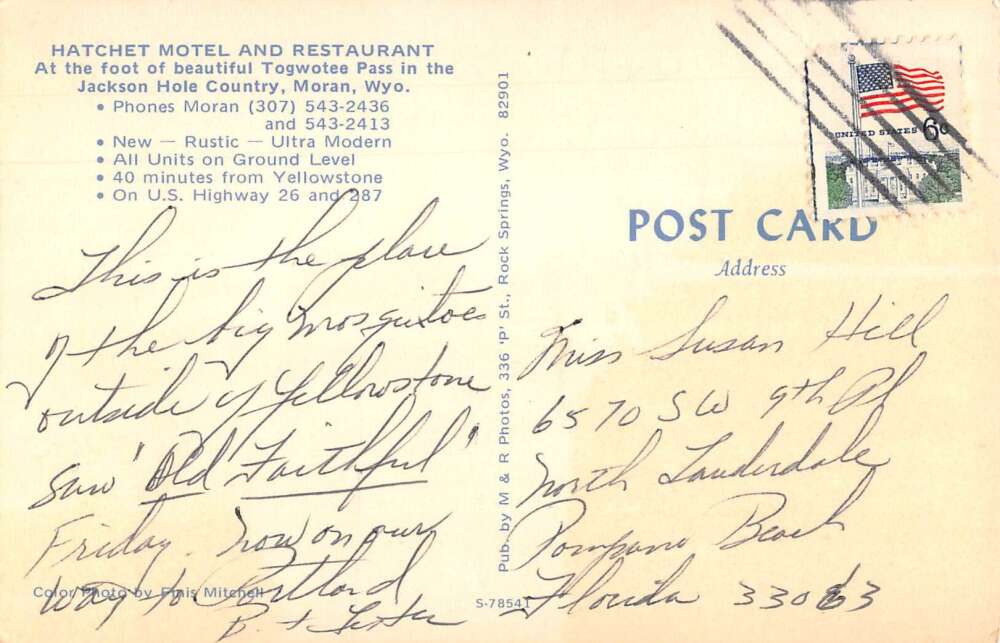 HATCHET MOTEL AND RESTAURANT
At the foot of beautiful Togwotee Pass in the
Jackson Hole Country, Moran, Wyo.
• Phones Moran (307) 543-2436
and 543-2413
• New — Rustic — Ultra Modern
• All Units on Ground Level
• 40 minutes from Yellowstone
• On U.S. Highway 26 and 287
This is the place
of the big mosquitoes
outside of Yellowstone
saw 'Old Faithful'
Friday. Now on our
way to Portland
B. + Lester
Color Photo by Finis Mitchell
Pub. by M & R Photos, 336 'P' St., Rock Springs, Wyo. 82901
S-78541
UNITED STATES 6c
POST CARD
Address
Miss Susan Hill
6570 SW 9th Pl
North Lauderdale
Pompano Beach
Florida 33063